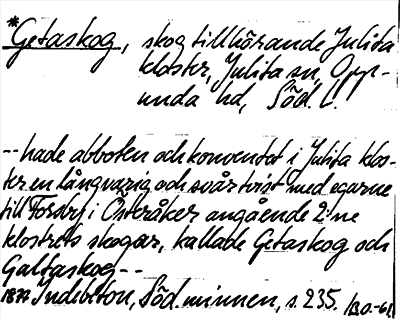 *Getaskog, skog tillhörande Julita
kloster, Julita sn, Opp-
unda hd, Söd. l.
-- hade abboten och konventet i Julita klos-
ter en långvarig och svår tvist med egarne
till Forsby i Österåker angående 2:ne
klostrets skogar, kallade Getaskog och
Galtaskog --
1877 Indebetou, Söd. minnen, s. 235. /B.O.-61/